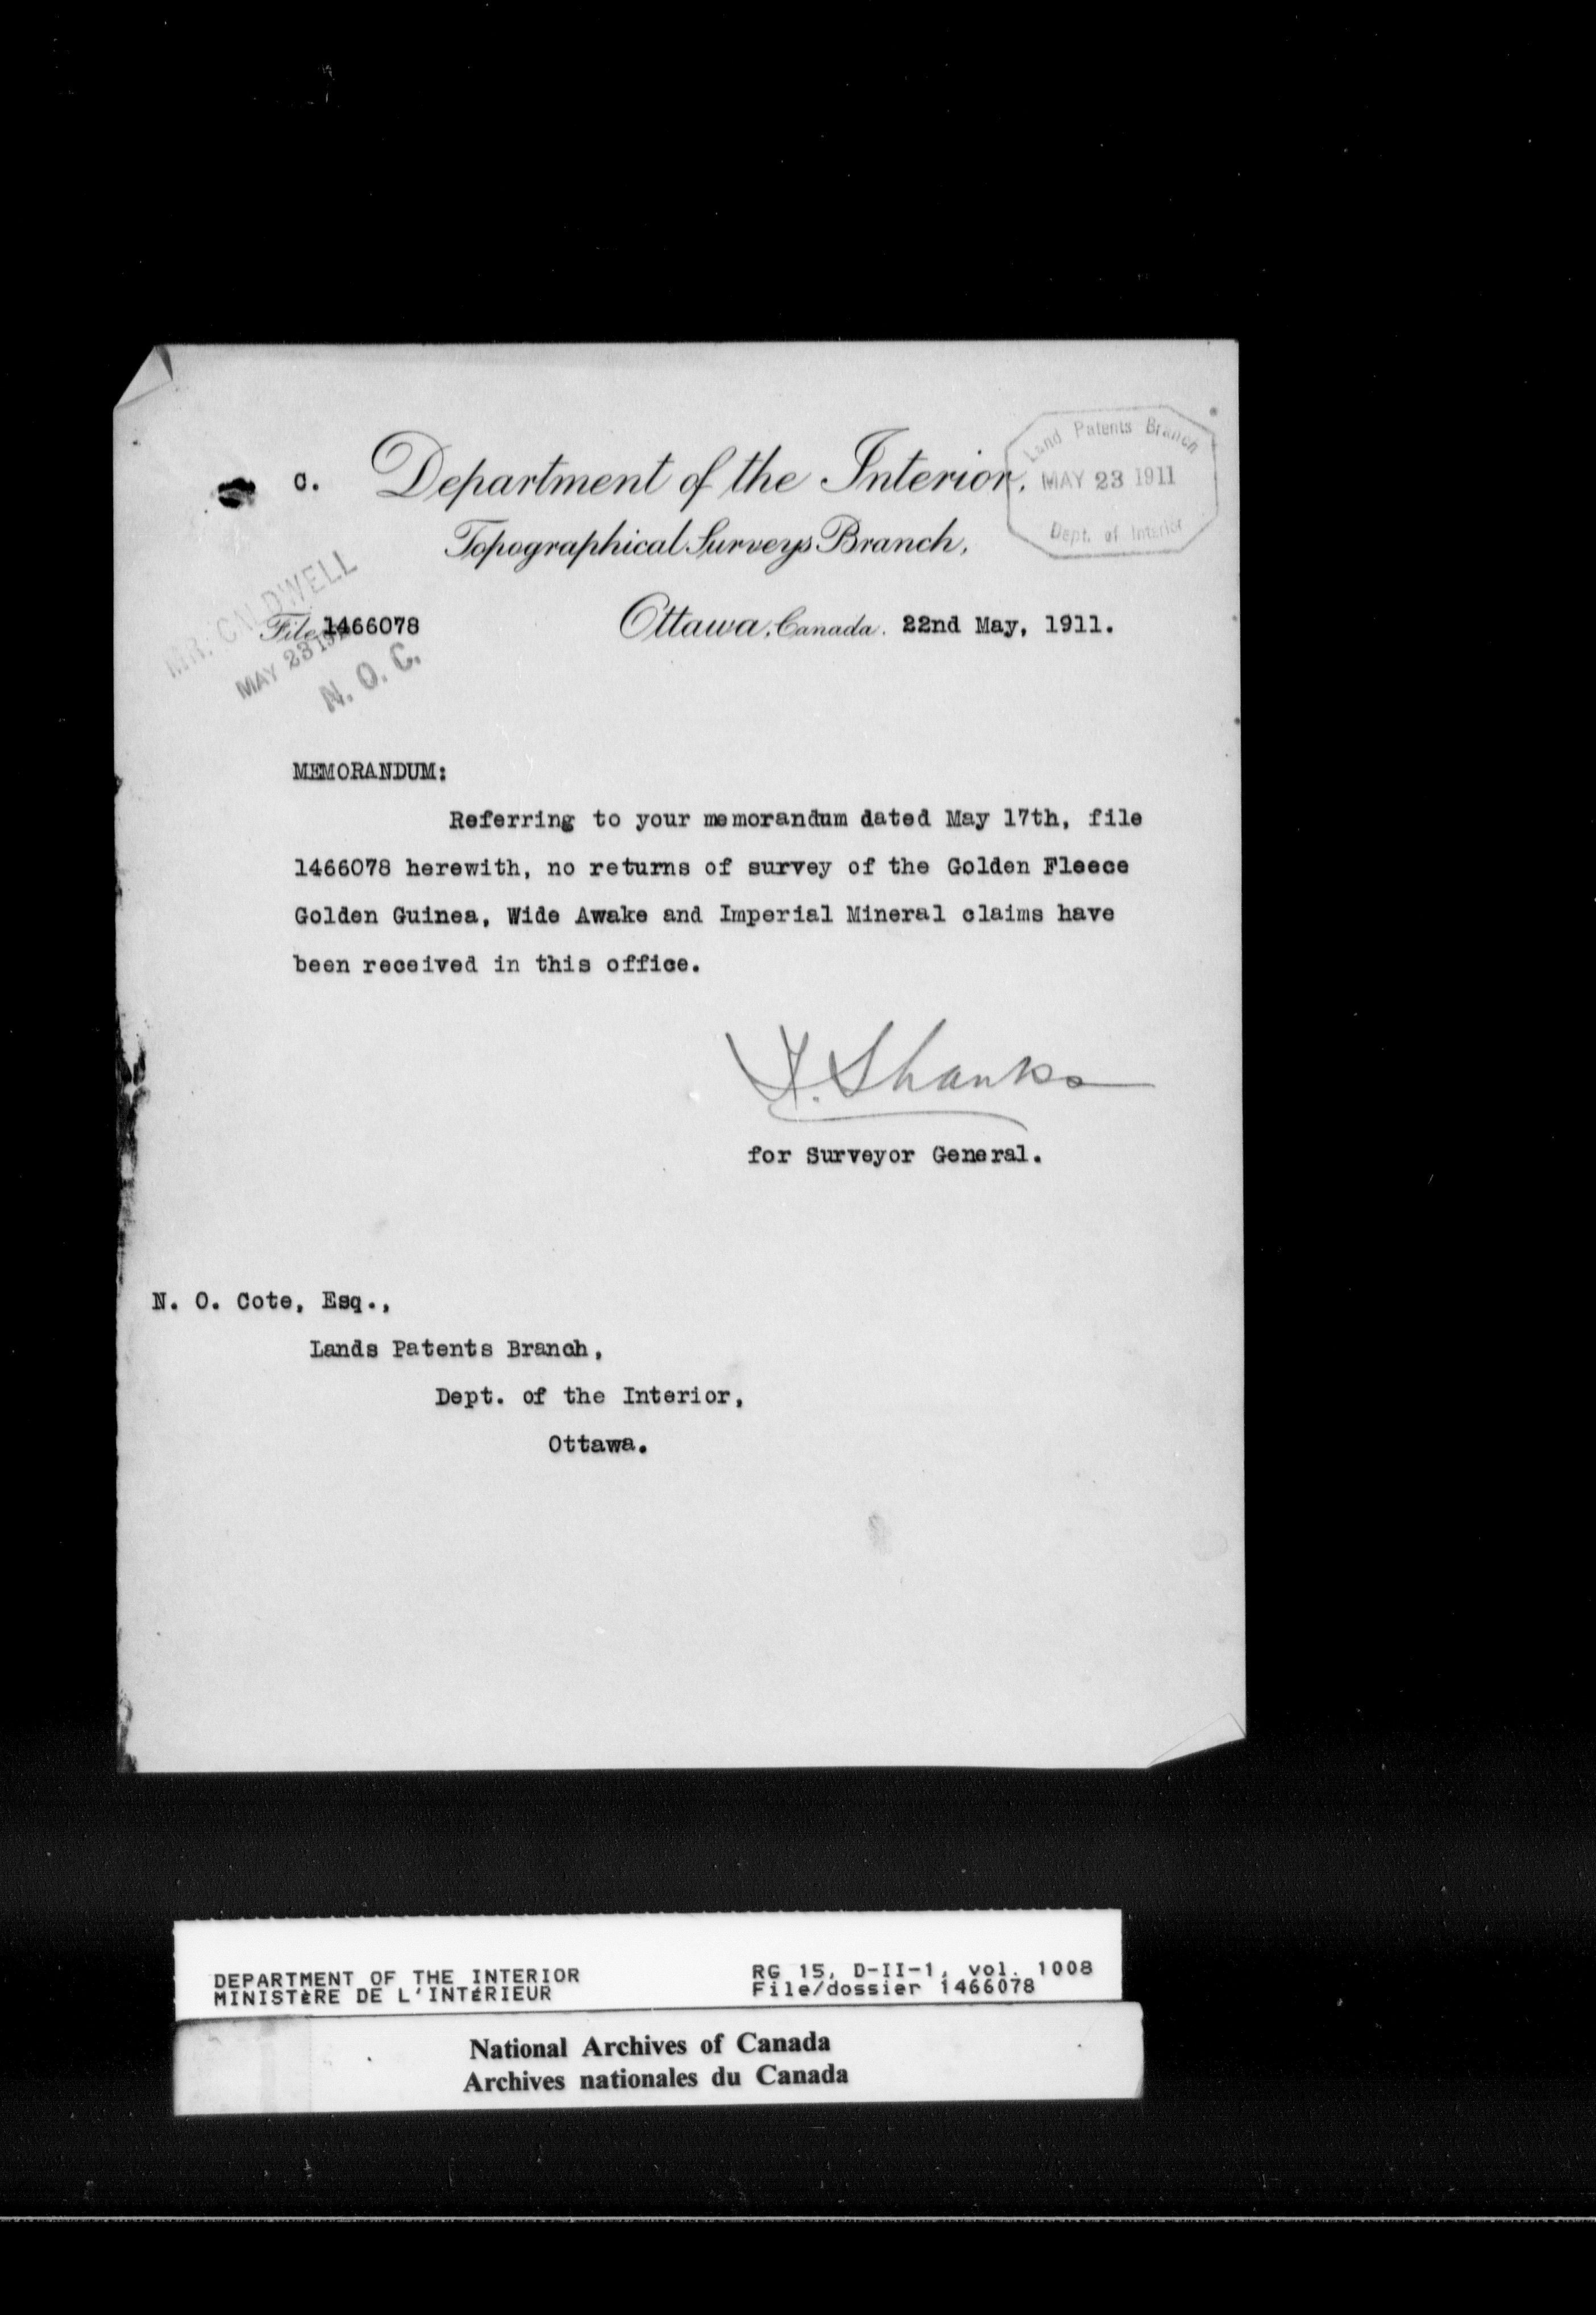 C. Department of the Interior,
Topographical Surveys Branch,
Land Patents Branch
MAY 23 1911
Dept. of Interior
MR. CALDWELL
MAY 23 1911
N. O. C.
File 1466078
Ottawa, Canada. 22nd May, 1911.
MEMORANDUM:
Referring to your memorandum dated May 17th, file
1466078 herewith, no returns of survey of the Golden Fleece
Golden Guinea, Wide Awake and Imperial Mineral claims have
been received in this office.
T. Shanks
for Surveyor General.
N. O. Cote, Esq.,
Lands Patents Branch,
Dept. of the Interior,
Ottawa.
DEPARTMENT OF THE INTERIOR
MINISTÈRE DE L'INTÉRIEUR
RG 15, D-II-1, vol. 1008
File/dossier 1466078
National Archives of Canada
Archives nationales du Canada